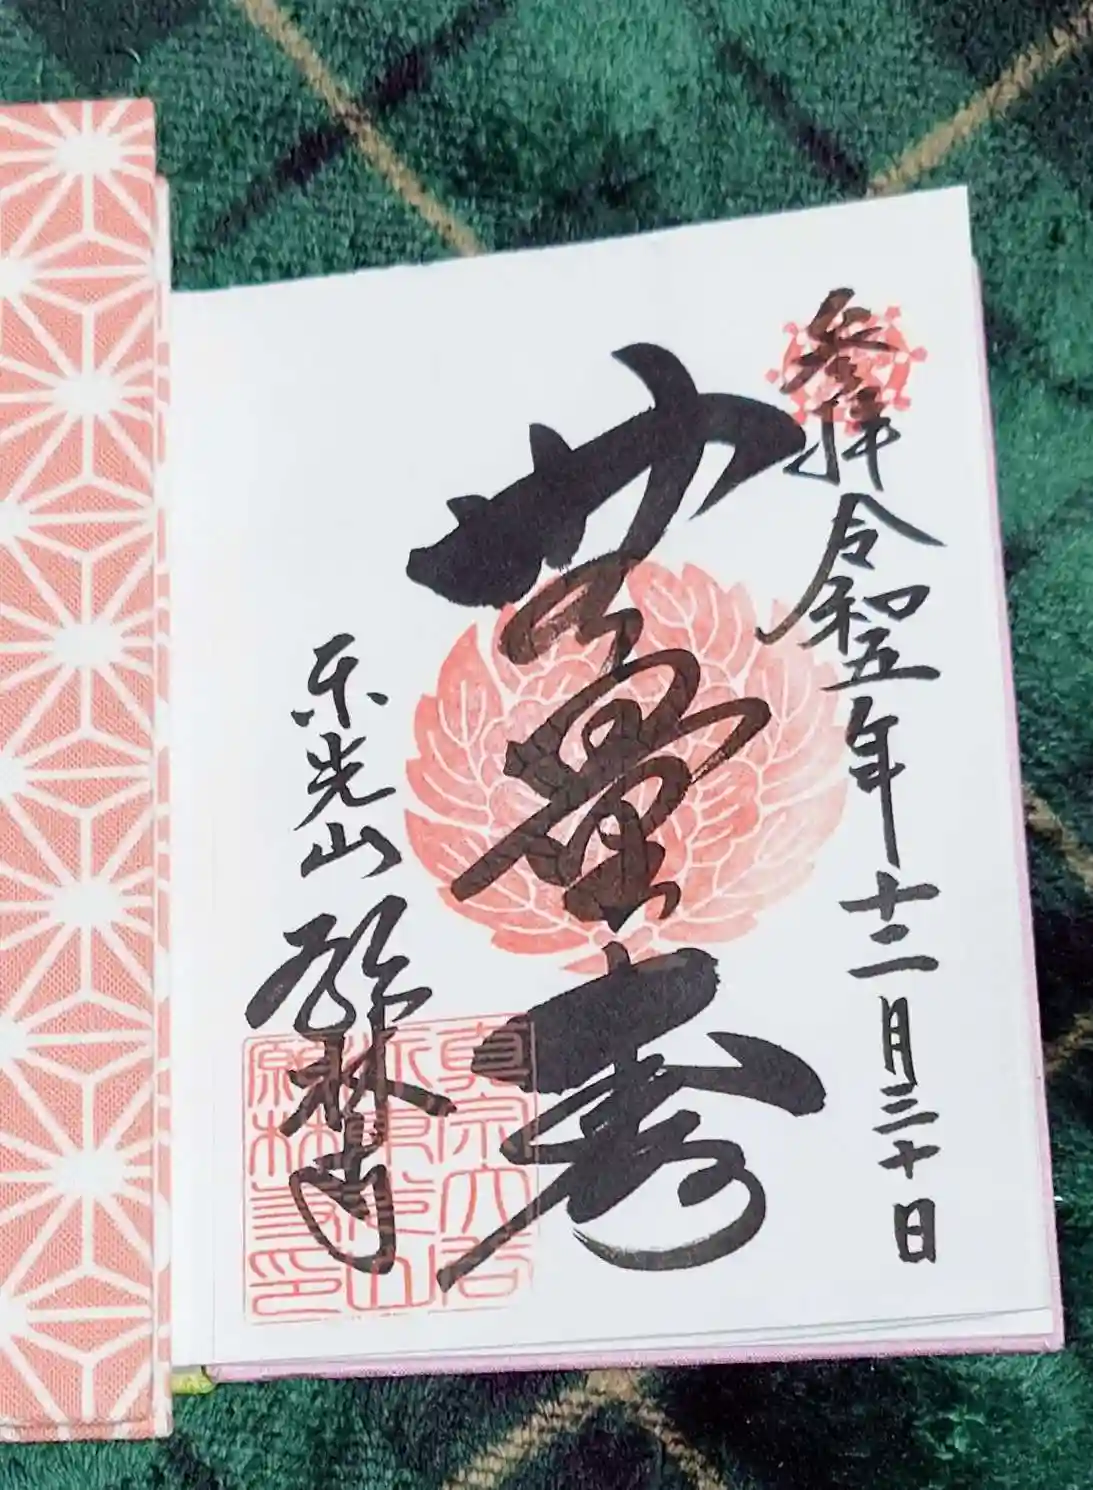 参拝 令和五年十二月三十日
無量寿
東光山 願林寺
真宗大谷
派東光山
願林寺印